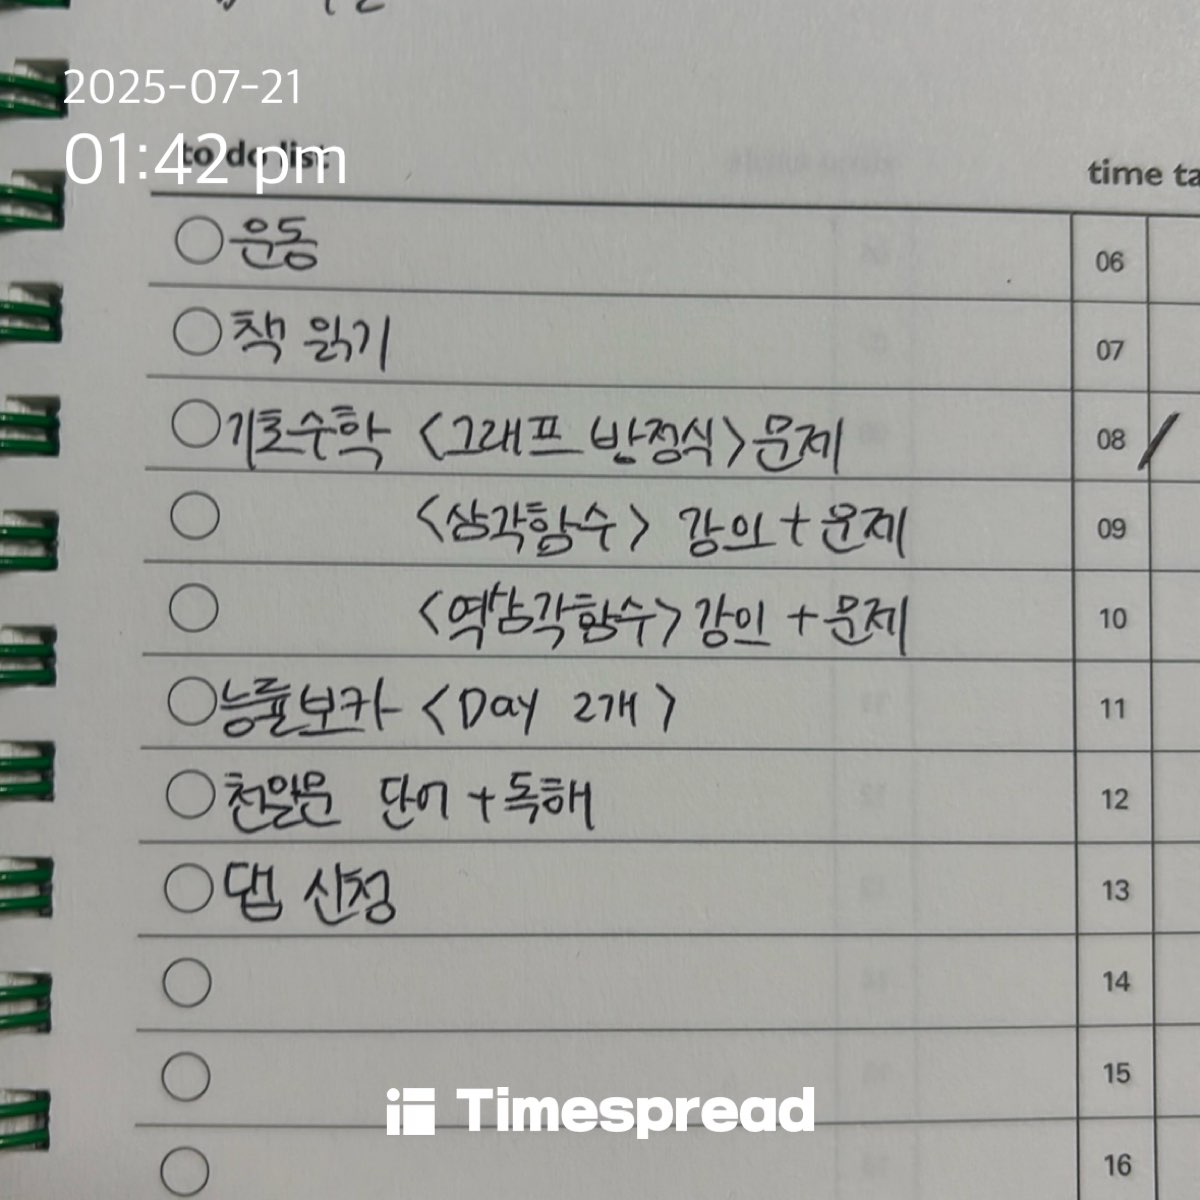 2025-07-21
01:42 pm
to do list
time ta
운동
06
책 읽기
07
기초수학 <그래프 반정식> 문제
08
<삼각함수> 강의 + 문제
09
<역삼각함수> 강의 + 문제
10
능률보카 <Day 2개>
11
천일문 단어 + 독해
12
댑 신청
13
14
15
Timespread
16